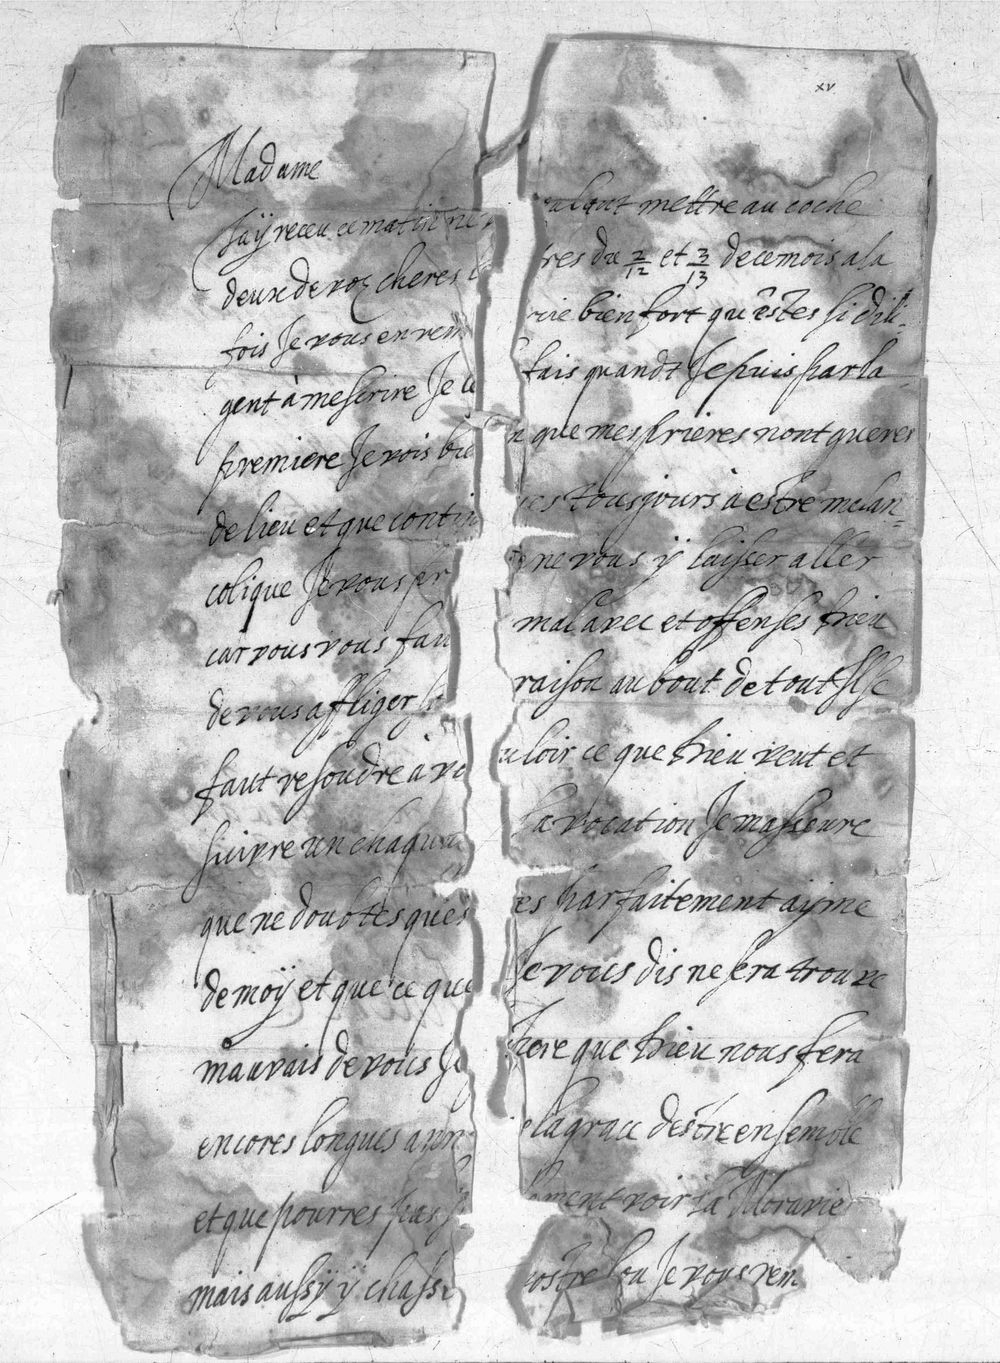 xv
Madame
Jaÿ receu ce matin me v oulant mettre au coche
deux de voz cheres le res du 2/12 et 3/13 de ce mois a la
fois Je vous en rem cie bien fort qu'estes si dili-
gent à mescrire Je le fais quandt Je puis par la
premiere Je vois bie n que mes prieres nont gueres
de lieu et que contin ues tousjours à estre melan-
colique Je vous pr ne vous ÿ laisser aller
car vous vous fait mal avec et offenses Dieu
de vous affliger raison au bout de tout Il se
faut resoudre à vo uloir ce que Dieu veut et
suivre un chaqun sa vocation Je masseure
que ne doubtes ques es parfaitement ayme
de moÿ et que ce que Je vous dis ne sera trouve
mauvais de vous Je spere que Dieu nous fera
encores longues ann e la grace destre ensemble
et que pourres pas s lement voir la Moravie
mais aussÿ ÿ chasse vostre Je vous rem